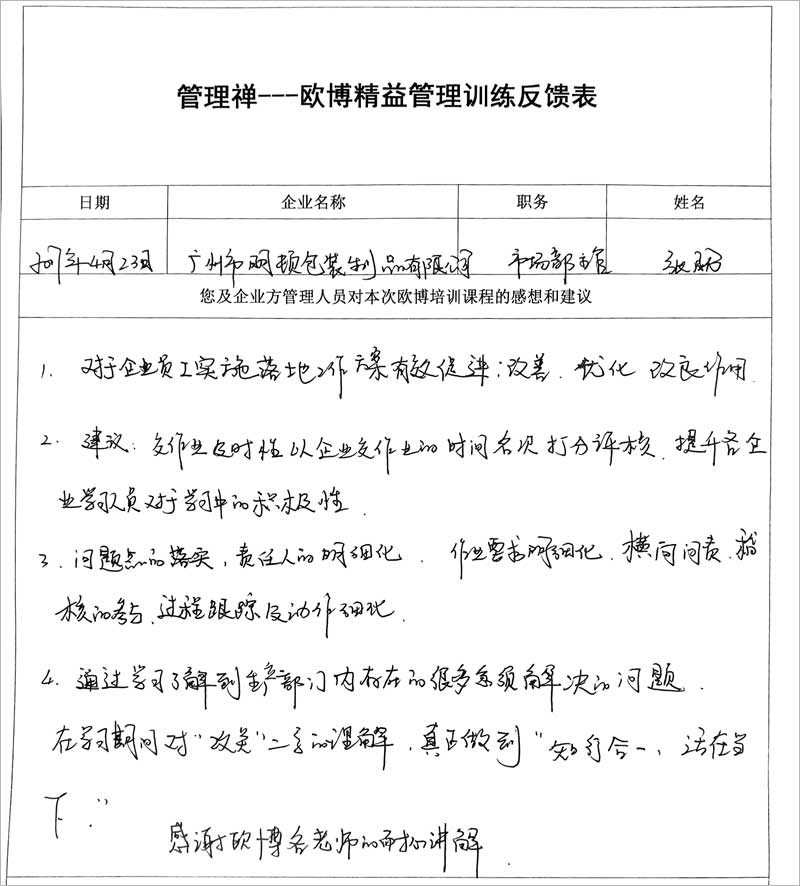 管理禅---欧博精益管理训练反馈表
日期 企业名称 职务 姓名
年4月23日 广州市明顿包装制品有限公司 市场部主管 张
您及企业方管理人员对本次欧博培训课程的感想和建议
1. 对于企业员工实施落地工作方案有效促进；改善、优化 改良作用
2. 建议：交作业及时性以企业交作业的时间名次打分评核、提升各企
业学习队员对于学习中的积极性.
3. 问题点的落实，责任人的明细化、作业要求明细化、横向问责、稽
核的参与、过程跟踪及动作细化.
4. 通过学习了解到生产部门内存在的很多急须解决的问题.
在学习期间对“攻关”二字的理解，真正做到“知行合一、活在当
下.”
感谢欧博各老师的耐心讲解.